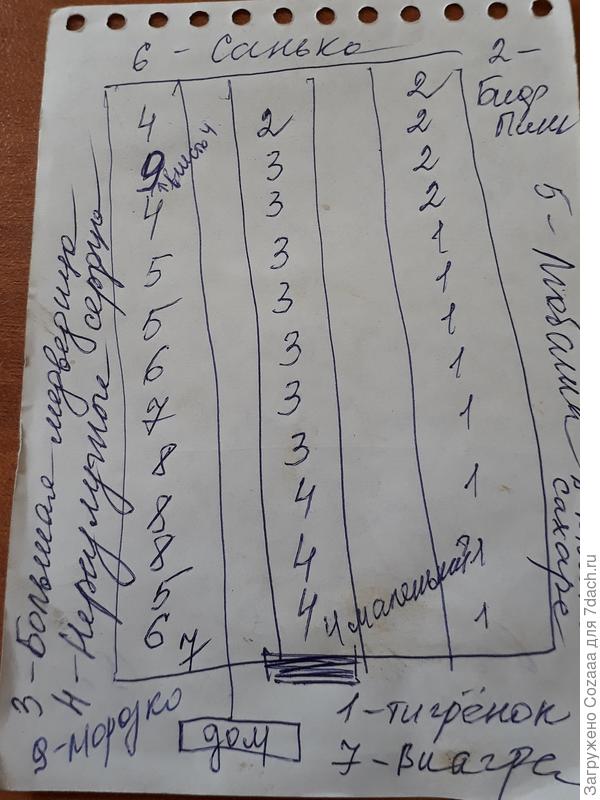 6 - Санька
2 -
Пинк
4
9
вместо 4
4
5
5
6
7
8
8
8
5
6
7
2
3
3
3
3
3
3
3
4
4
4
4 маленький
2
2
2
2
1
1
1
1
1
1
1
1
3 - Большая медведица
4 - сердце
5 -
сахаре
8 -
дом
1 - тигрёнок
7 - Виагра
Загружено Cozaaa для 7dach.ru